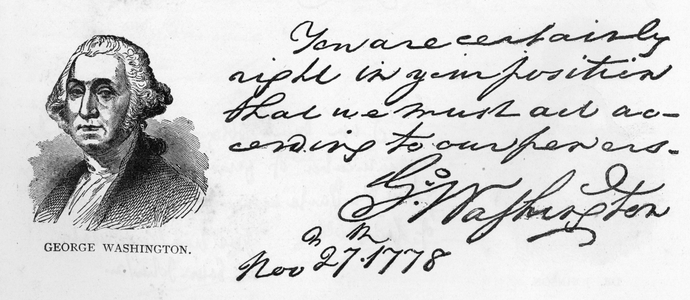 You are certainly
right in your position
that we must act ac-
cording to our powers-
Go. Washington
Nov 27th. 1778
GEORGE WASHINGTON.